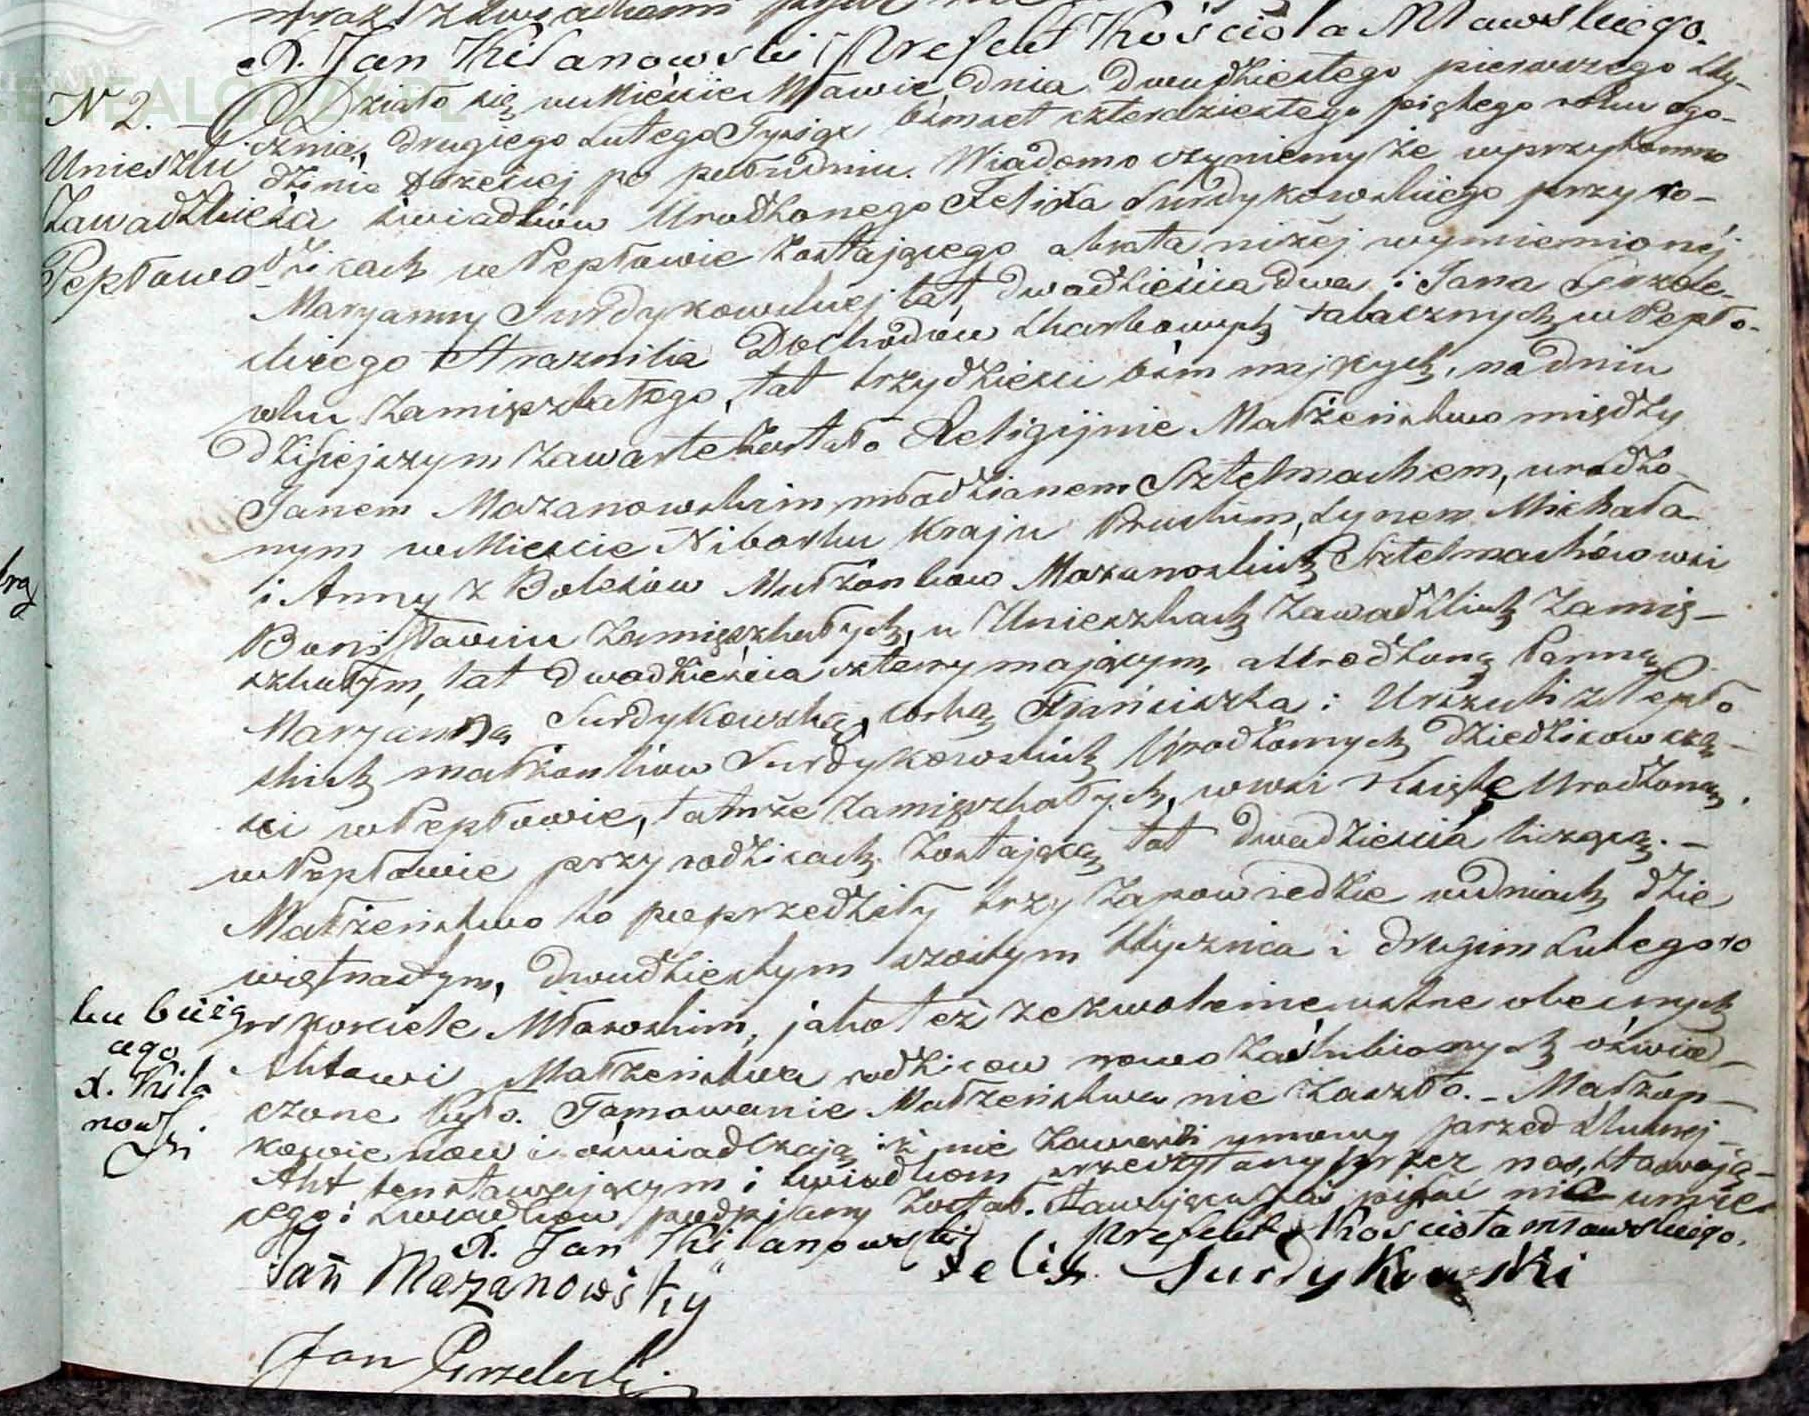 X. Jan Kilanowski Prefekt Kościoła Mławskiego.
N 2.
Unieszki
Zawadzkie
Pepłowo
Działo się w Mieście Mławie dnia dwudziestego pierwszego Sty-
cznia, drugiego Lutego Tysiąc ósmset czterdziestego piątego roku o go-
dzinie trzeciej po południu. Wiadomo czyniemy że w przytomno
świadków Urodzonego Felixa Surdykowskiego przy ro-
dzicach w Pepłowie zostającego a brata niżej wymienionéj
Maryanny Surdykowskiej lat dwadzieścia dwa i Jana Grzele-
ckiego Strażnika Dochodów Skarbowych tabacznych w Pepło-
wku zamięszkałego, lat trzydzieści ósm mających, na dniu
dzisiejszym zawarte zostało Religijnie Małżeństwo między
Janem Mazanowskim młodzianem Sztelmachem, urodzo-
nym w Mieście Niborku Kraju Pruskim, synem Michała
i Anny z Bolesów Małżonków Mazanoskich Sztelmachów w wsi
zamięszkałych, w Unieszkach Zawadzkich zamię-
szkałym, lat dwadzieścia cztery mającym, a Urodzoną Panną
Maryanną Surdykowską, córką Franciszka i Urszuli z Pepło
skich małżonków Surdykowskich Urodzonych dziedziców czą-
ści w Pepłowie, tamże zamięszkałych, w wsi Urodzoną,
w Pepłowie przy rodzicach zostającą lat dwadzieścia liczącą. -
Małżeństwo to poprzedziły trzy zapowiedzie w dniach dzie
więtnastym, dwudziestym szóstym Stycznia i drugim Lutego ro
ku bieżą
cego
X. Kila
nowski
w kościele Mławskim, jakoteż zezwolenie ustne obecnych
Aktowi Małżeństwa rodziców nowo zaślubionych oświad-
czone było. Tamowanie Małżeństwa nie zaszło. - Małżon-
kowie nowi oświadczają iż nie zawarli umowy przed ślubnej
Akt ten stawającym i świadkom przeczytany przez nas, stawają-
cego i świadków podpisany został. Stawająca zaś pisać nie umie.
X. Jan Kilanowski Prefekt Kościoła Mławskiego.
Jan Mazanowsky Felix Surdykowski
Jan Grzelecki